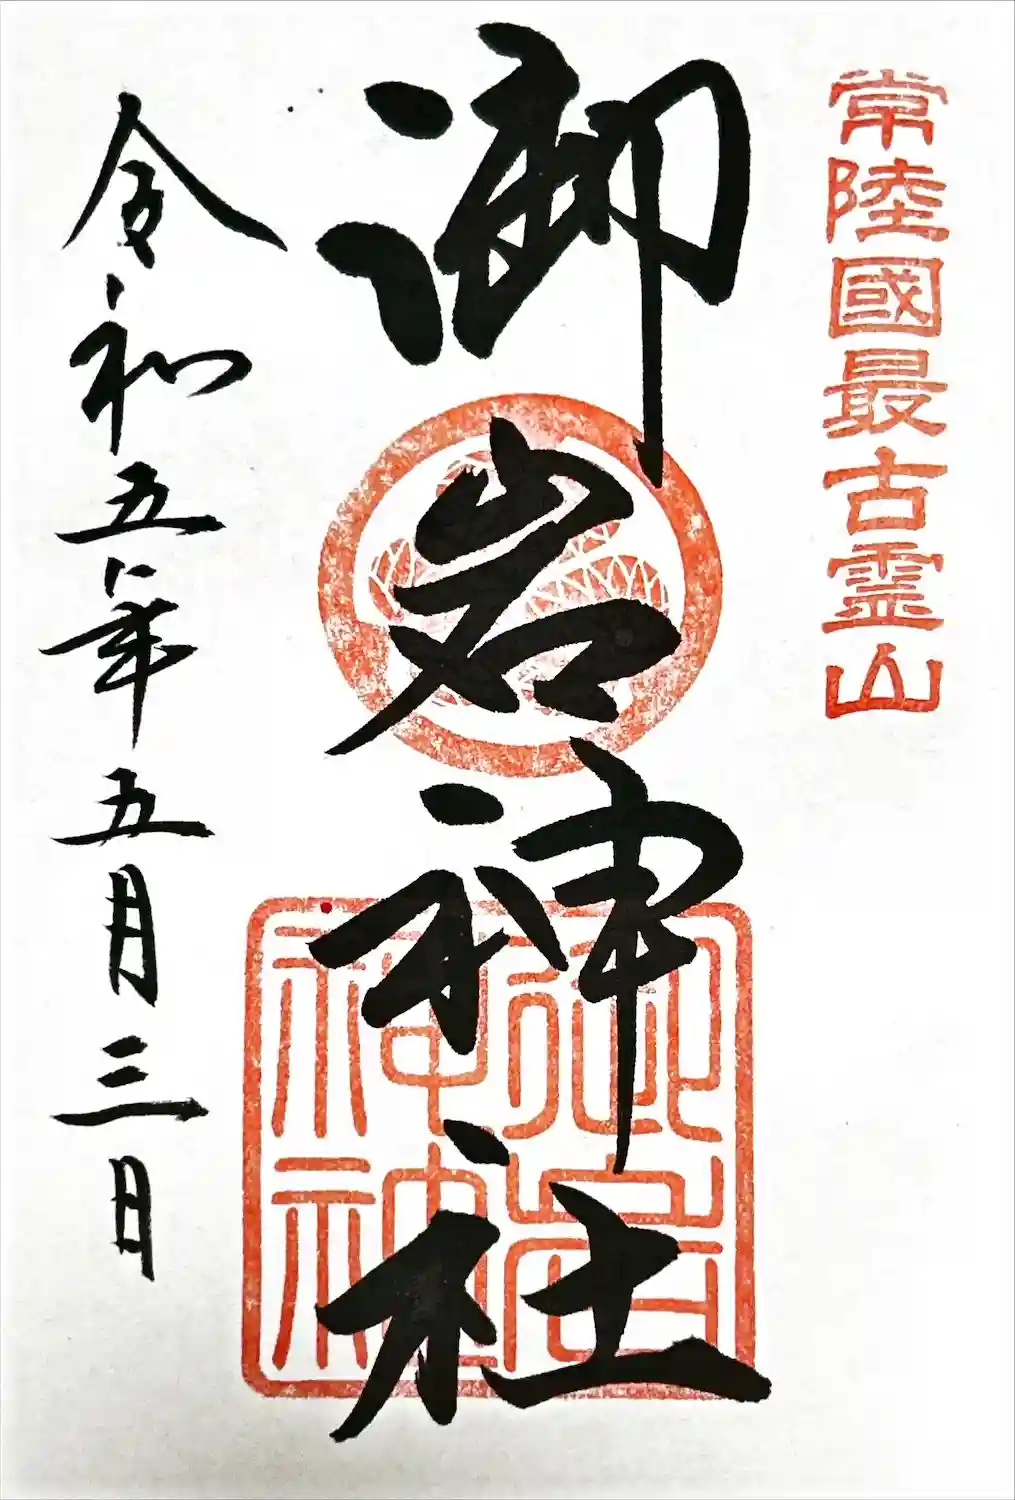 常陸國最古霊山
御岩神社
令和五年五月三日
御岩
神社